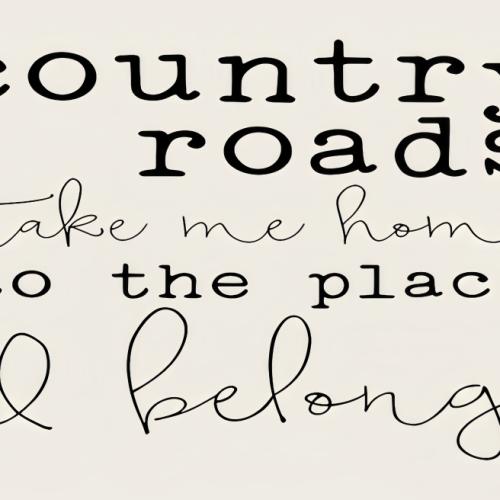 country
roads
take me home
to the place
I belong